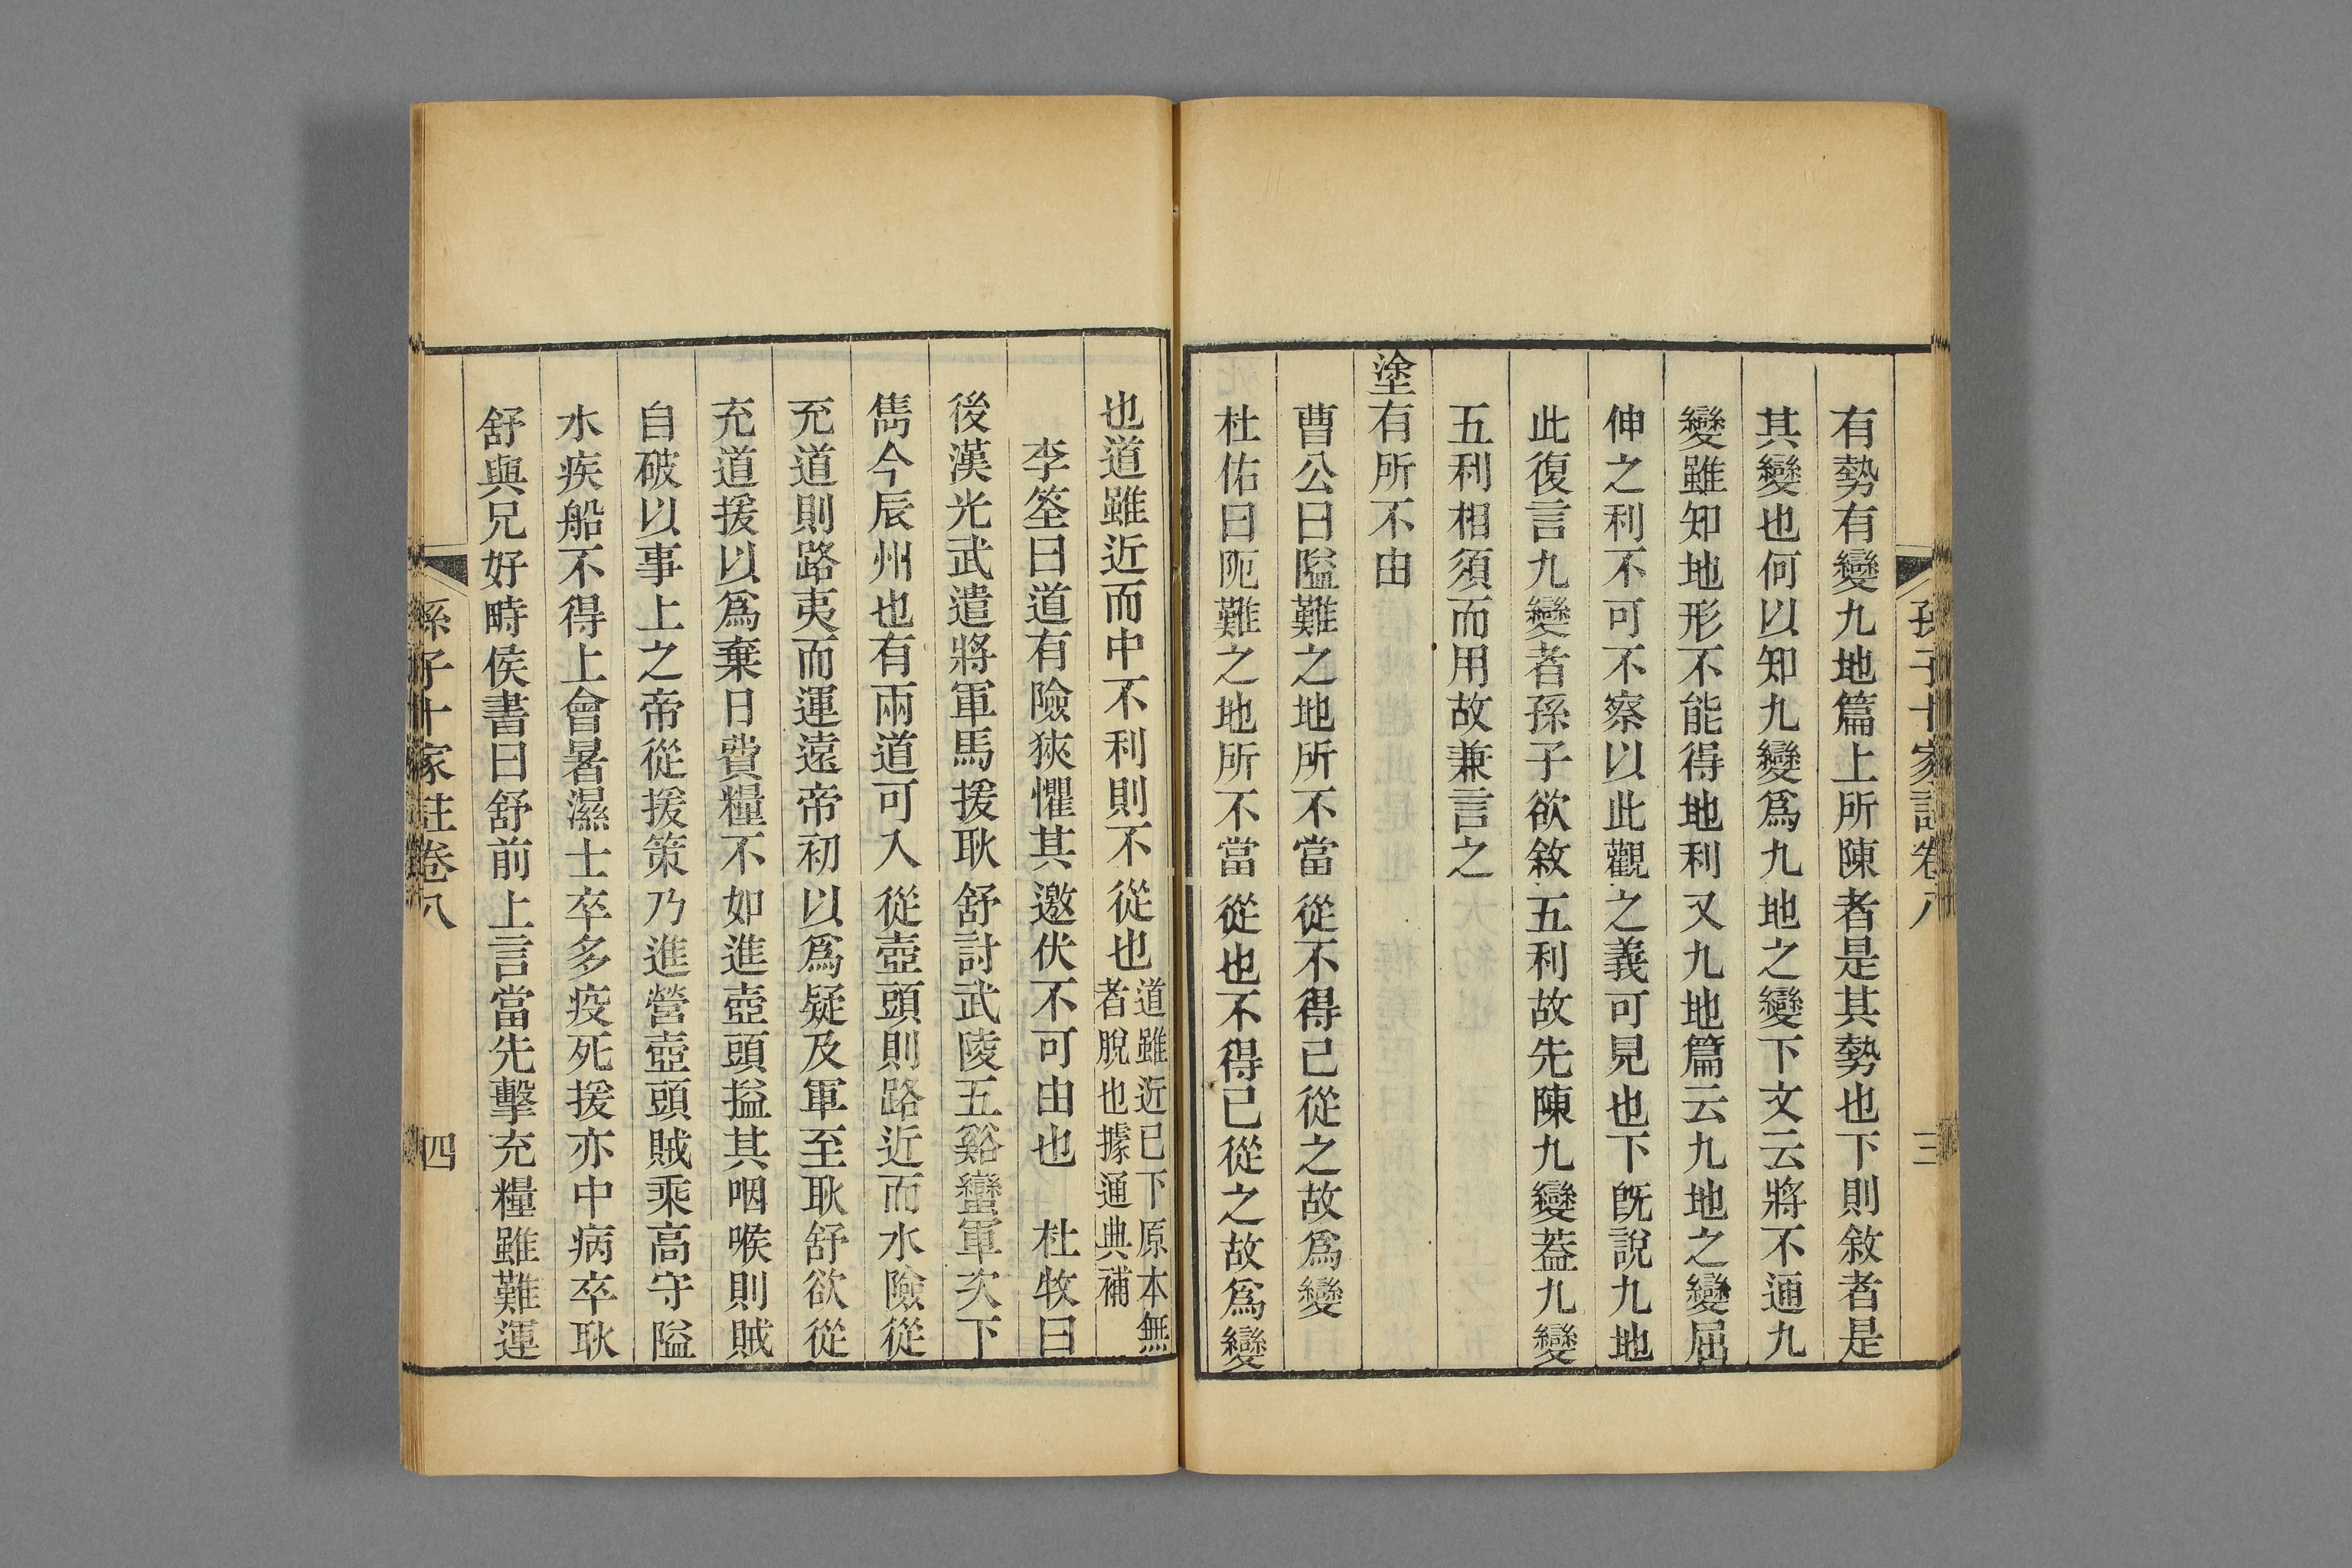 孫子十家註卷八
三
有勢有變九地篇上所陳者是其勢也下則敘者是
其變也何以知九變爲九地之變下文云將不通九
變雖知地形不能得地利又九地篇云九地之變屈
伸之利不可不察以此觀之義可見也下旣說九地
此復言九變者孫子欲敘五利故先陳九變葢九變
五利相須而用故兼言之
塗有所不由
曹公曰隘難之地所不當從不得已從之故爲變
杜佑曰阨難之地所不當從也不得已從之故爲變
也道雖近而中不利則不從也道雖近已下原本無
者脫也據通典補
李筌曰道有險狹懼其邀伏不可由也 杜牧曰
後漢光武遣將軍馬援耿舒討武陵五谿蠻軍次下
雋今辰州也有兩道可入從壺頭則路近而水險從
充道則路夷而運遠帝初以爲疑及軍至耿舒欲從
充道援以爲棄日費糧不如進壺頭搤其咽喉則賊
自破以事上之帝從援策乃進營壺頭賊乘高守隘
水疾船不得上會暑濕士卒多疫死援亦中病卒耿
舒與兄好畤侯書曰舒前上言當先擊充糧雖難運
孫子十家註卷八
四